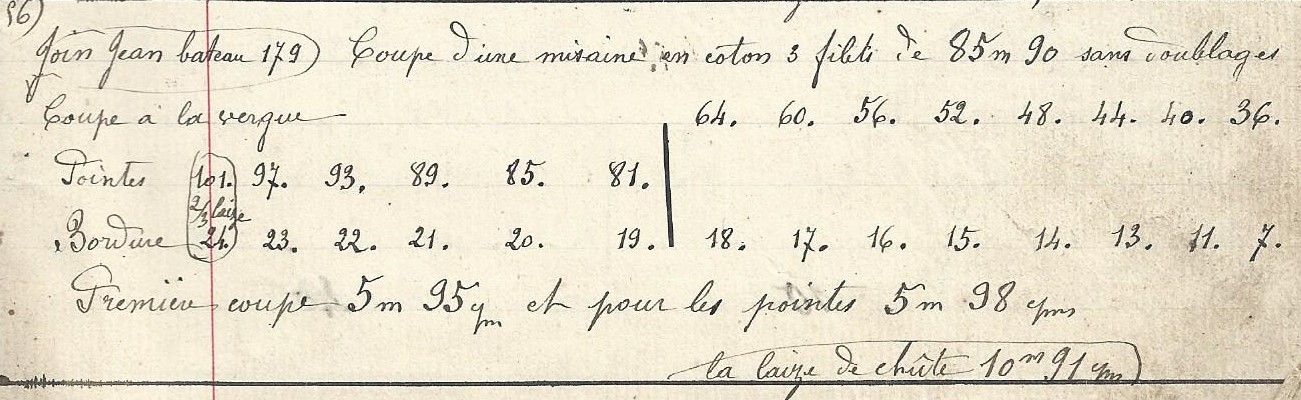 56)
Join Jean bateau 179) Coupe d'une misaine en coton 3 filets de 85m 90 sans doublages
Coupe a la vergue 64. 60. 56. 52. 48. 44. 40. 36.
Pointes 101. 97. 93. 89. 85. 81.
2/3 laize
Bordure 24. 23. 22. 21. 20. 19. 18. 17. 16. 15. 14. 13. 11. 7.
Première coupe 5m 95 cm et pour les pointes 5m 98 cms
la laize de chûte 10m 91 cms